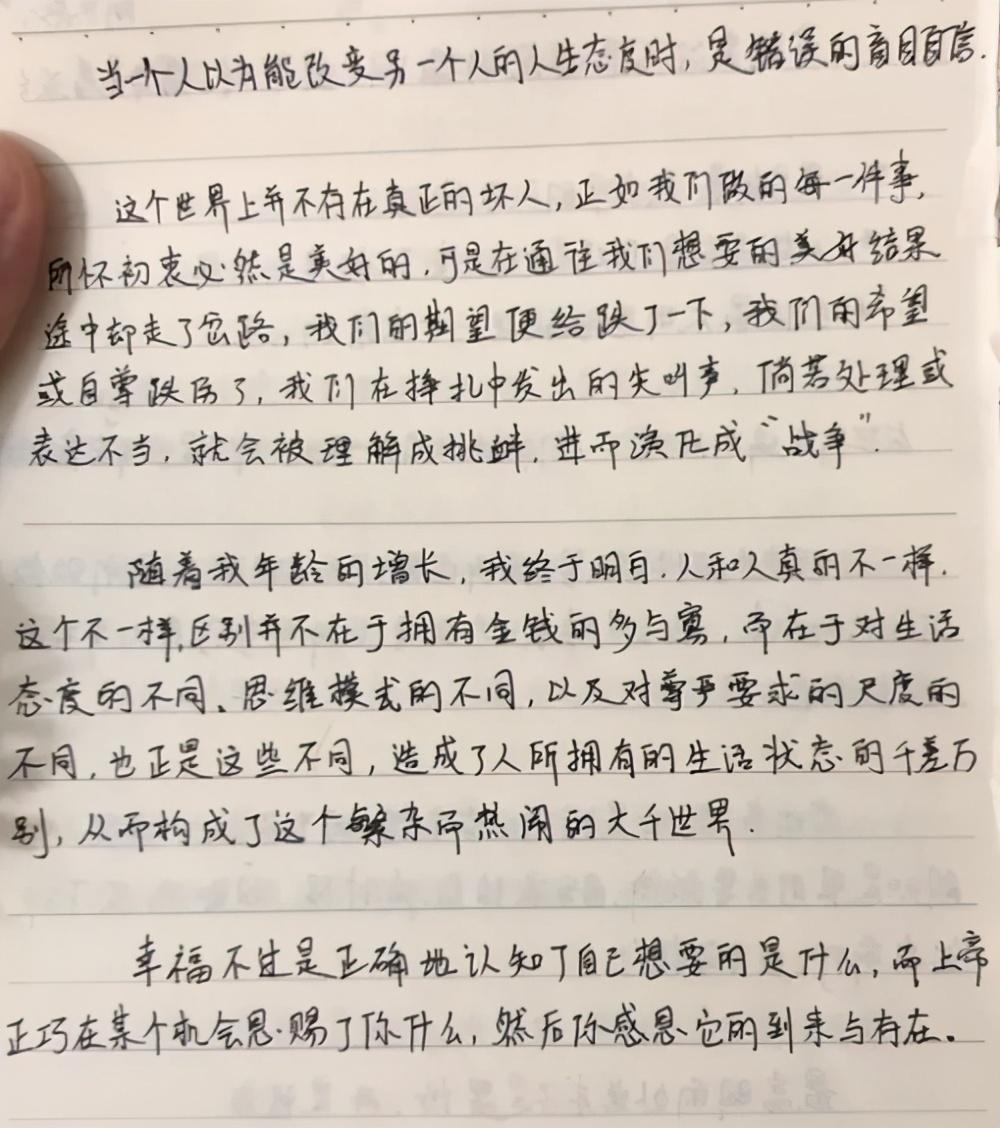 当一个人以为能改变另一个人的人生态度时，是错误的盲目自信.
这个世界上并不存在真正的坏人，正如我们做的每一件事，
所怀初衷必然是美好的，可是在通往我们想要的美好结果
途中却走了岔路，我们的期望便给跌了一下，我们的希望
或自尊跌伤了，我们在挣扎中发出的尖叫声，倘若处理或
表达不当，就会被理解成挑衅，进而演化成“战争”.
随着我年龄的增长，我终于明白.人和人真的不一样.
这个不一样,区别并不在于拥有金钱的多与寡，而在于对生活
态度的不同、思维模式的不同，以及对尊严要求的尺度的
不同，也正是这些不同，造成了人所拥有的生活状态的千差万
别，从而构成了这个繁杂而热闹的大千世界.
幸福不过是正确地认知了自己想要的是什么，而上帝
正巧在某个机会恩赐了你什么，然后你感恩它的到来与存在。